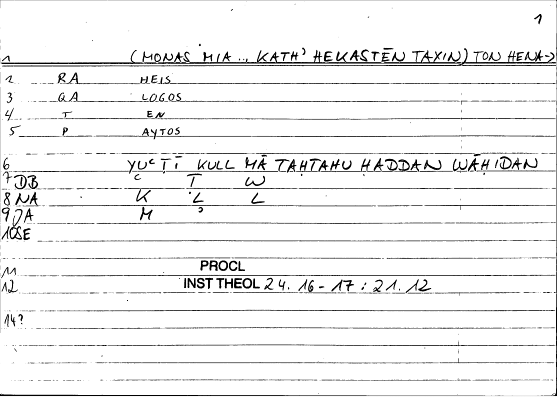 1
1 (MONAS MIA .., KATH' HEKASTĒN TAXIN) TON HENA->
2 RA HEIS
3 QA LOGOS
4 T EN
5 P AYTOS
6 YUᶜṬĪ KULL MĀ TAḤTAHU ḤADDAN WĀḤIDAN
7 DB ᶜ Ṭ W
8 NA K L L
9 JA M ʾ
10 SE
11 PROCL
12 INST THEOL 24. 16-17 : 21. 12
14?